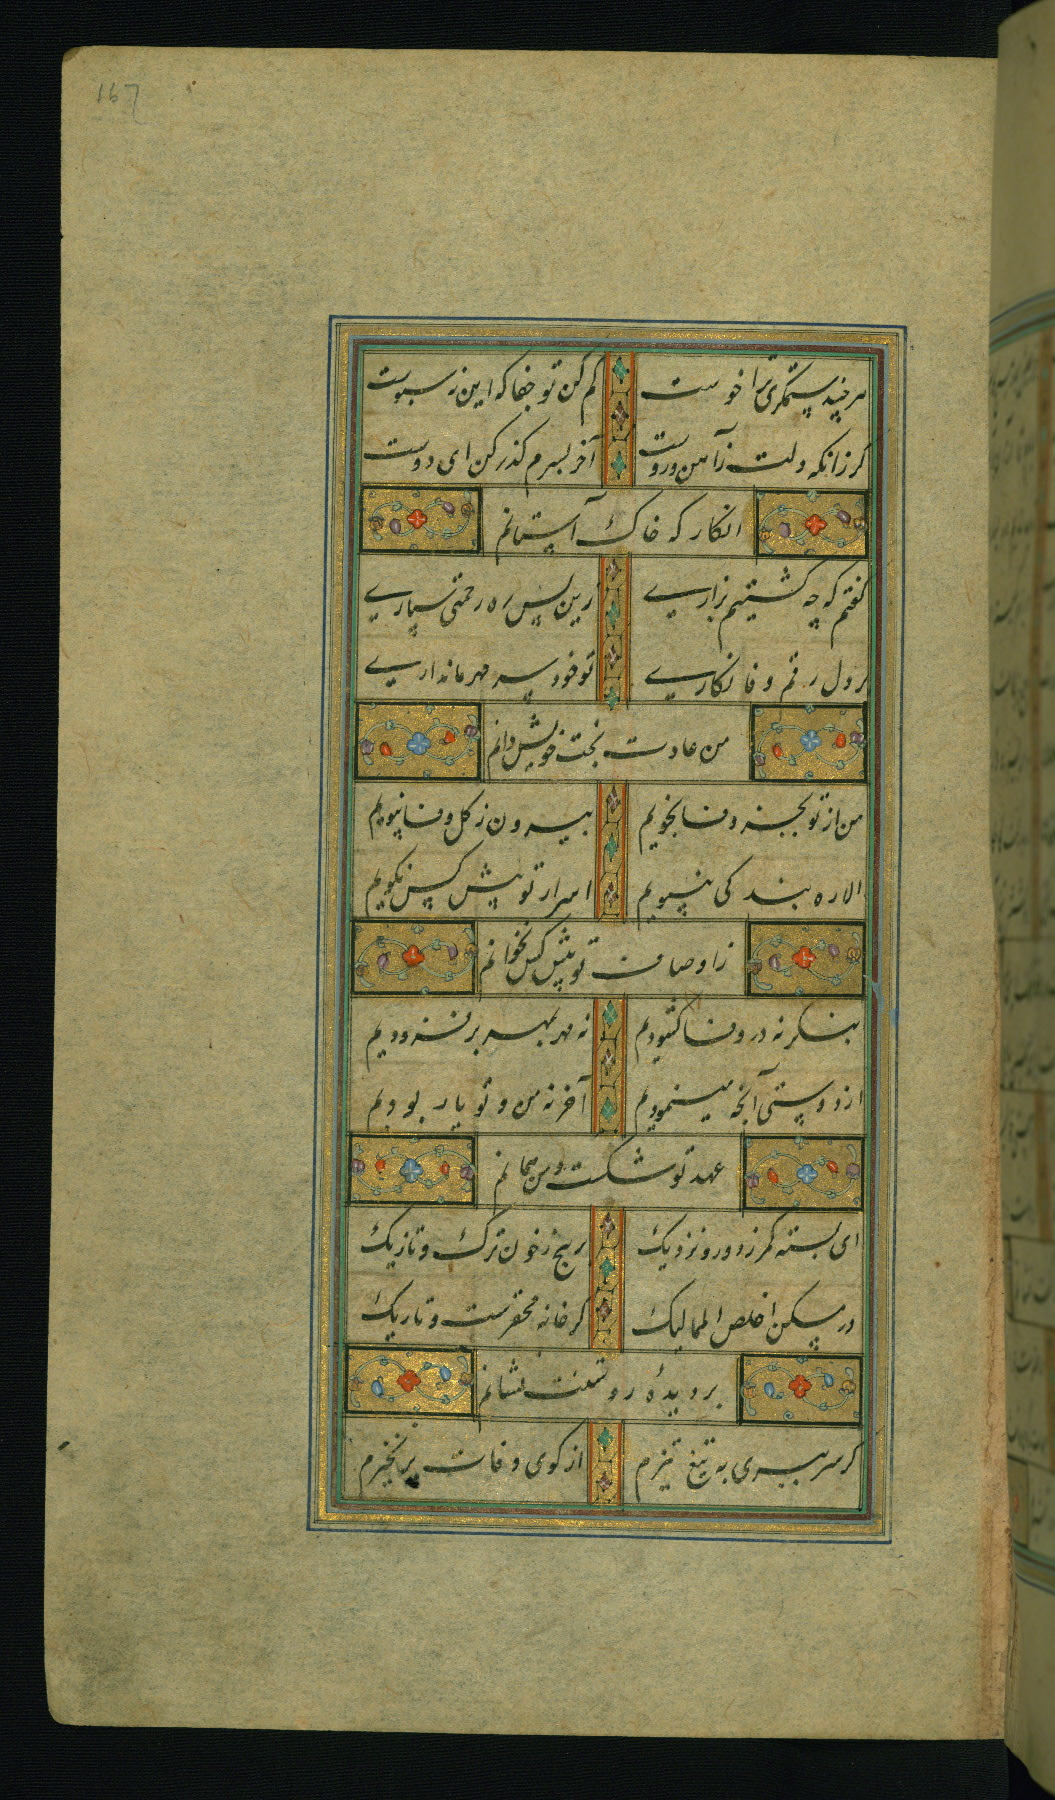 167
هر چند ستمگری ترا خوست کم کن تو جفا که این نه نیکوست
کر زانکه دلت ز آهن و روست آخر بسرم کذر کن ای دوست
انکار که خاک آستانم
کفتم که چه کشتیم بزاری زین پس ره رحمتی سپاری
بر دل رقم وفا نکاری تو خود سر مهر ما نداری
من عادت بخت خویش دانم
من از تو بجز وفا نجویم بیرون ز کل وفا نبویم
الا ره بندکی نپویم اسرار تو پیش کس نکویم
ز اوصاف تو پیش کس نخوانم
نه مهر بمهر برفزودیم
از دوستی آنچه مینمودیم آخر نه من و تو یار بودیم
عهد تو شکست و من همانم
ای بسته کمر ز دور و نزدیک بر خون ترک و تازیک
در مسکن اخلص الممالیک کر خانه محقرست و تاریک
بر دیدهٔ روشنت نشانم
کر سر ببری به تیغ تیزم از کوی وفات بر نخیزم